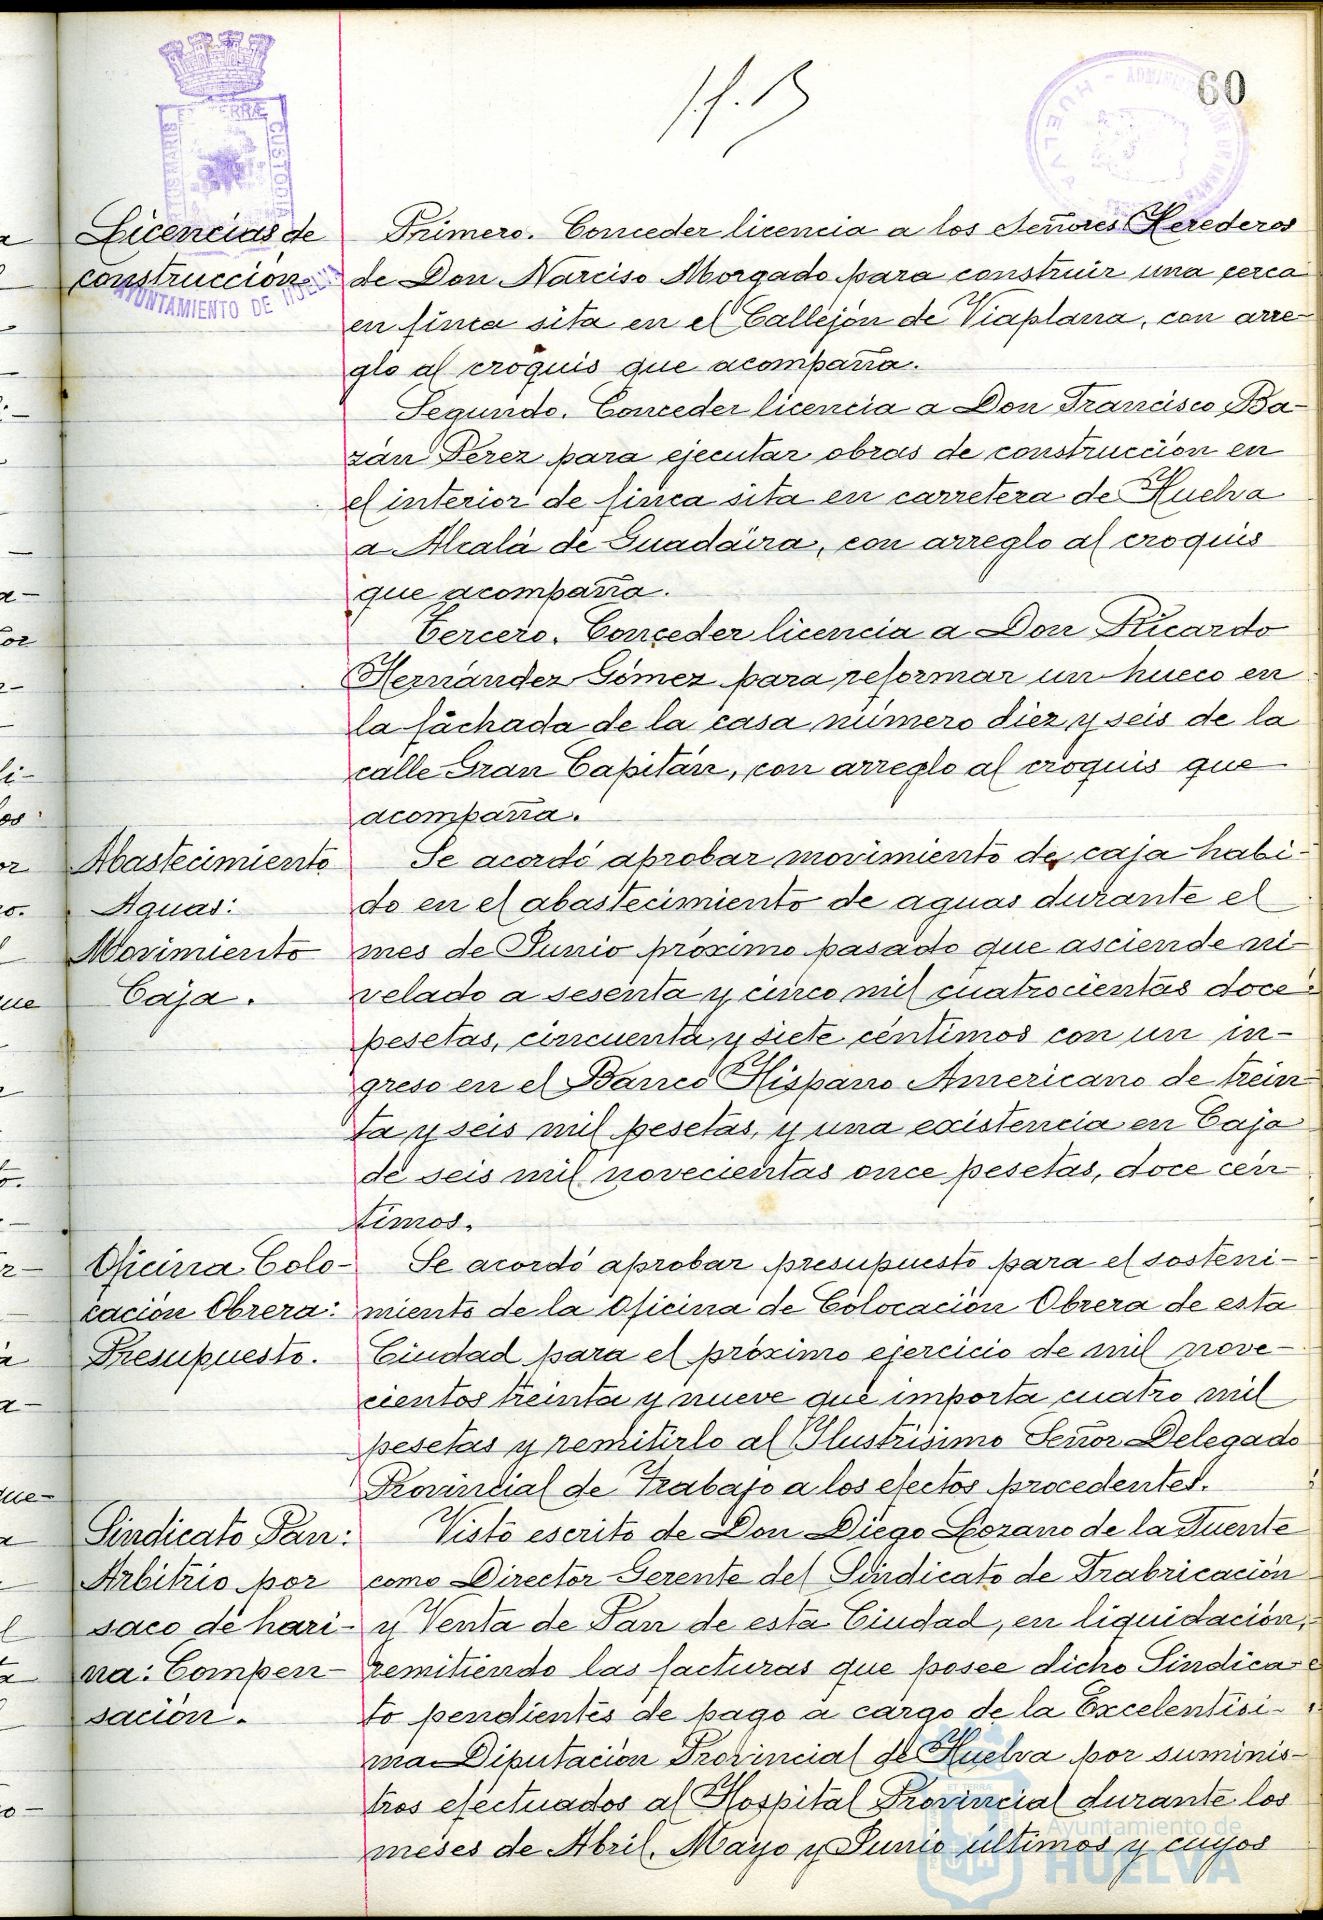 60
Licencias de
construcción
Primero. Conceder licencia a los Señores Herederos
de Don Narciso Morgado para construir una cerca
en finca sita en el Callejón de Viaplana, con arre-
glo al croquis que acompaña.
Segundo. Conceder licencia a Don Francisco Ba-
zán Perez para ejecutar obras de construcción en
el interior de finca sita en carretera de Huelva
a Alcalá de Guadaira, con arreglo al croquis
que acompaña.
Tercero. Conceder licencia a Don Ricardo
Hernández Gómez para reformar un hueco en
la fachada de la casa número diez y seis de la
calle Gran Capitán, con arreglo al croquis que
acompaña.
Abastecimiento
Aguas:
Movimiento
Caja.
Se acordó aprobar movimiento de caja habi-
do en el abastecimiento de aguas durante el
mes de Junio próximo pasado que asciende ni-
velado a sesenta y cinco mil cuatrocientas doce
pesetas, cincuenta y siete céntimos con un in-
greso en el Banco Hispano Americano de trein-
ta y seis mil pesetas, y una existencia en Caja
de seis mil novecientas once pesetas, doce cén-
timos.
Oficina Colo-
cación Obrera:
Presupuesto.
Se acordó aprobar presupuesto para el sosteni-
miento de la Oficina de Colocación Obrera de esta
Ciudad para el próximo ejercicio de mil nove-
cientos treinta y nueve que importa cuatro mil
pesetas y remitirlo al Ilustrisimo Señor Delegado
Provincial de Trabajo a los efectos procedentes.
Sindicato Pan:
Arbitrio por
saco de hari-
na: Compen-
sación.
Visto escrito de Don Diego Lozano de la Fuente
como Director Gerente del Sindicato de Frabricación
y Venta de Pan de esta Ciudad, en liquidación,
remitiendo las facturas que posee dicho Sindica-
to pendientes de pago a cargo de la Excelentisi-
ma Diputación Provincial de Huelva por suminis-
tros efectuados al Hospital Provincial durante los
meses de Abril, Mayo y Junio últimos y cuyos
AYUNTAMIENTO DE HUELVA
TERRÆ CUSTODIA
HUELVA
Ayuntamiento de
HUELVA